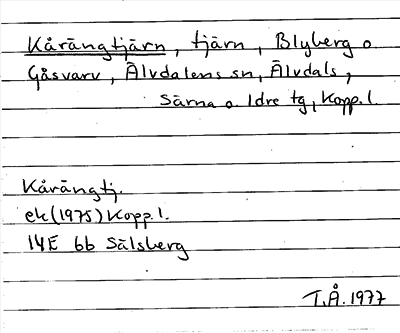 Kårängtjärn, tjärn, Blyberg o.
Gåsvarv, Älvdalens sn, Älvdals,
Särna o. Idre tg, Kopp. l.
Kårängtj.
ek (1975) Kopp. l.
14E 6b Sälsberg
T.Å. 1977